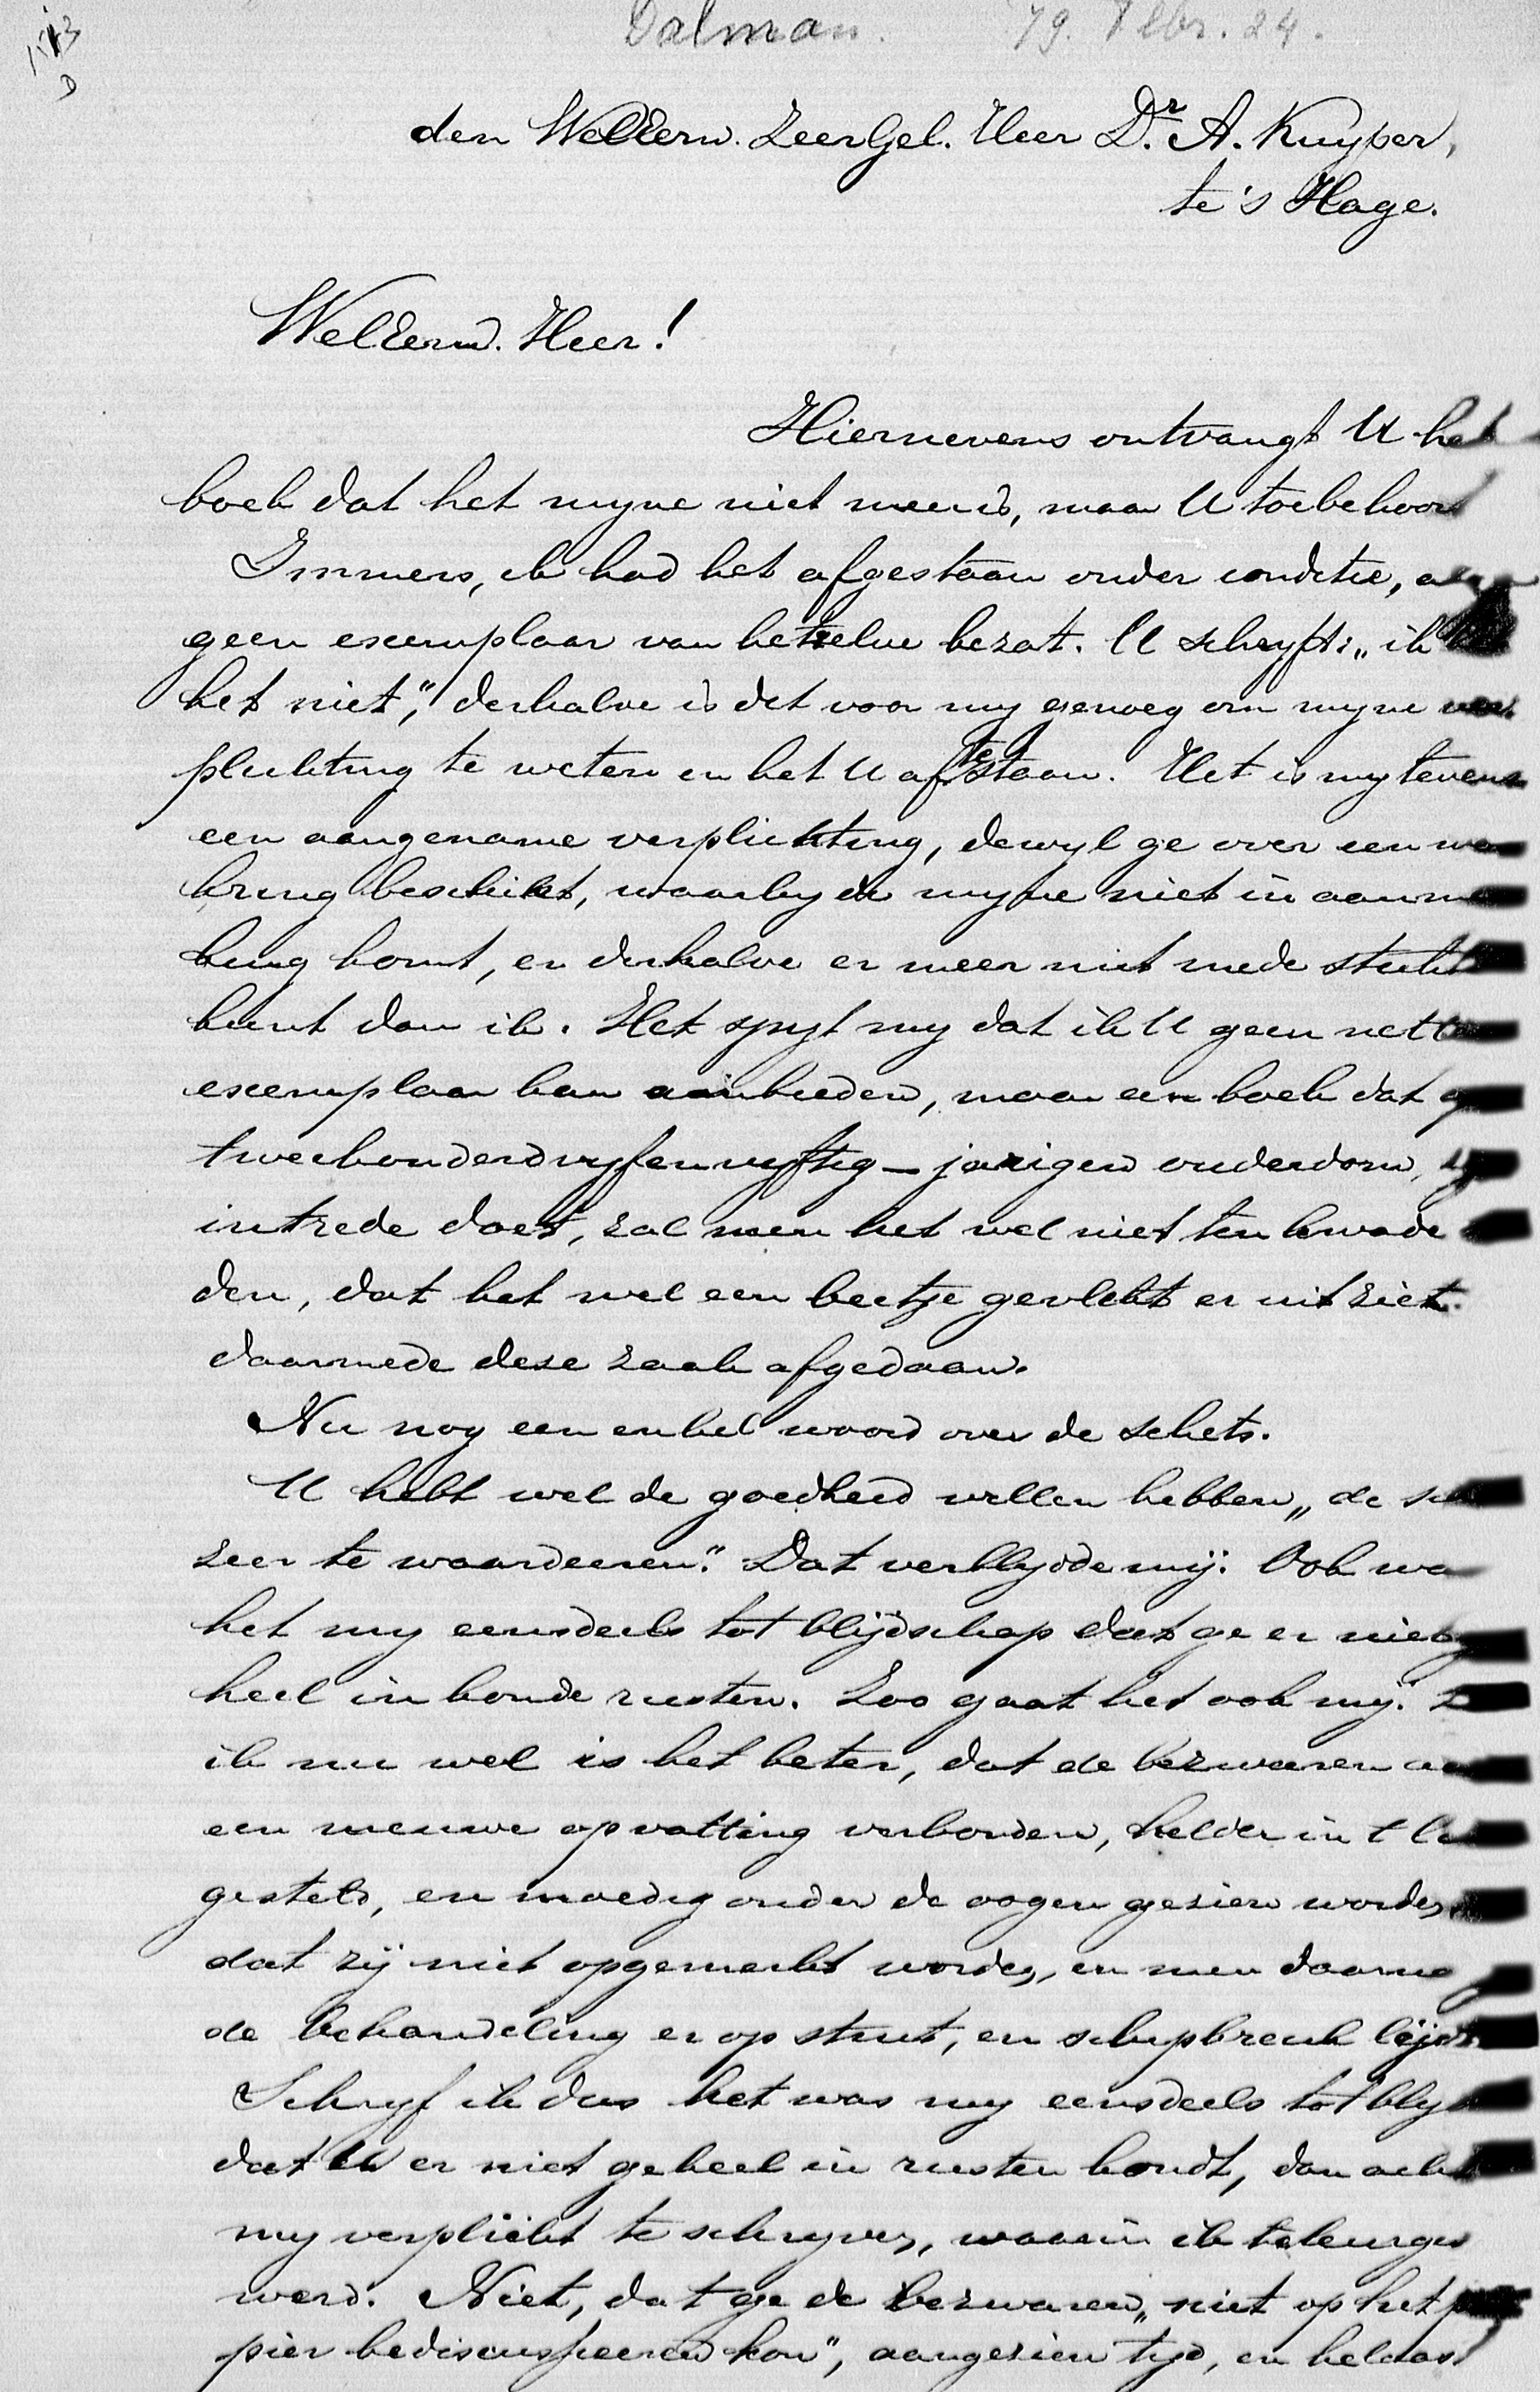 Dalman. 79. Febr. 24.
den WelEerw. ZeerGel. Heer Dr. A. Kuyper,
te 's Hage.
WelEerw. Heer!
Hiernevens ontvangt U het
boek dat het myne niet meer is, maar U toebehoort
Immers, ik had het afgestaan onder conditie, als
geen exemplaar van hetzelve bezat. U schryft: „ik
het niet", derhalve is dit voor my genoeg om myne ver
plichting te weten en het U af te staan. Het is my tevens
een aangename verplichting, dewyl ge over een
kring beschikt, waarby de myne niet in aanme
king komt, en derhalve er meer nut mede sticht
kunt dan ik. Het spyt my dat ik U geen nette
exemplaar kan aanbieden, maar een boek dat
tweehonderdvyfenvyftig-jarigen ouderdom,
intrede doet, zal men het wel niet ten kwade
den, dat het wel een beetje gevlekt er uit ziet.
daarmede deze zaak afgedaan.
Nu nog een enkel woord over de schets.
U hebt wel de goedheid willen hebben „de sch
zeer te waardeeren." Dat verblydde mij. Ook wa
het my eensdeels tot blijdschap dat ge er niet
heel in konde rusten. Zoo gaat het ook mij.
ik nu wel is het beter, dat de bezwaren aan
een nieuwe opvatting verbonden, helder in t li
gesteld, en moedig onder de oogen gezien worden,
dat zij niet opgemerkt worden, en men daarna
de behandeling er op stuit, en schipbreuk lijdt.
Schryf ik dus het was my eensdeels tot bly
dat U er niet geheel in rusten kondt, dan acht
my verplicht te schryven, waarin ik teleurges
werd. Niet, dat ge de bezwaren „niet op het pa
pier bediscusseeren kon", aangezien tyd, en helaas